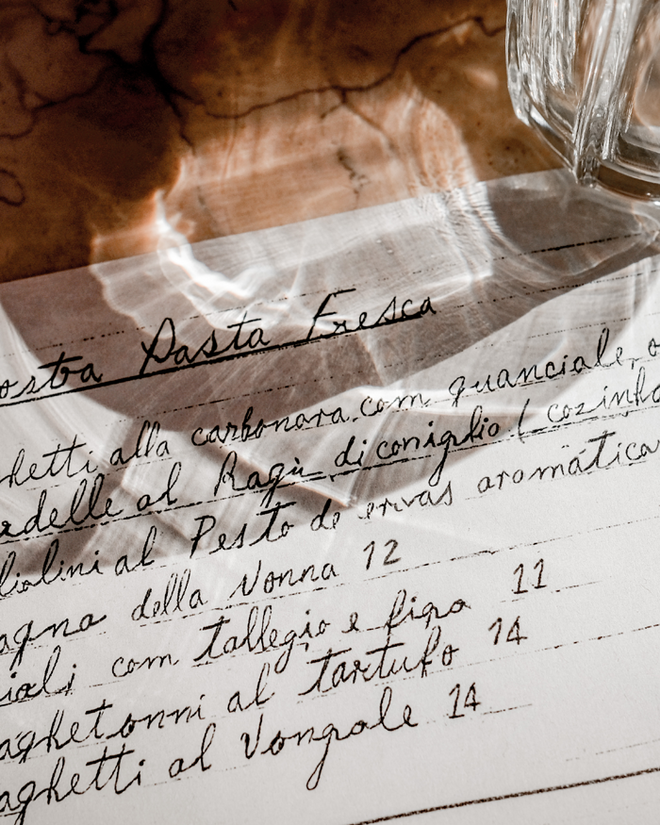 ostra Pasta Fresca
hetti alla carbonara com guanciale, o
rdelle al Ragù di coniglio ( cozinha
liolini al Pesto de ervas aromática
agna della Nonna 12
ioli com tallegio e figo 11
aghetonni al tartufo 14
aghetti al Vongole 14